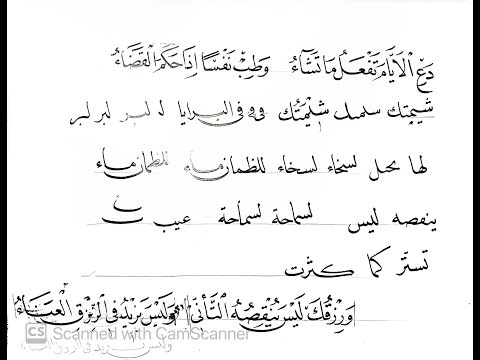 دَعِ الْأَيَّامَ تَفْعَلُ مَا تَشَاءُ وَطِبْ نَفْسًا إِذَا حَكَمَ الْقَضَاءُ
شيمتك شِيْمَتُك في البرايا
لها لسخاء لسخاء للظمآن ماء للظمآن ماء
ينقصه ليس لسماحة لسماحة عيب
تستر كما كثرت
وَرِزْقُكَ لَيْسَ يُنْقِصُهُ التَّأَنِّي وَلَيْسَ يَزِيْدُ فِي الرِّزْقِ الْعَنَاءُ
CS Scanned with CamScanner